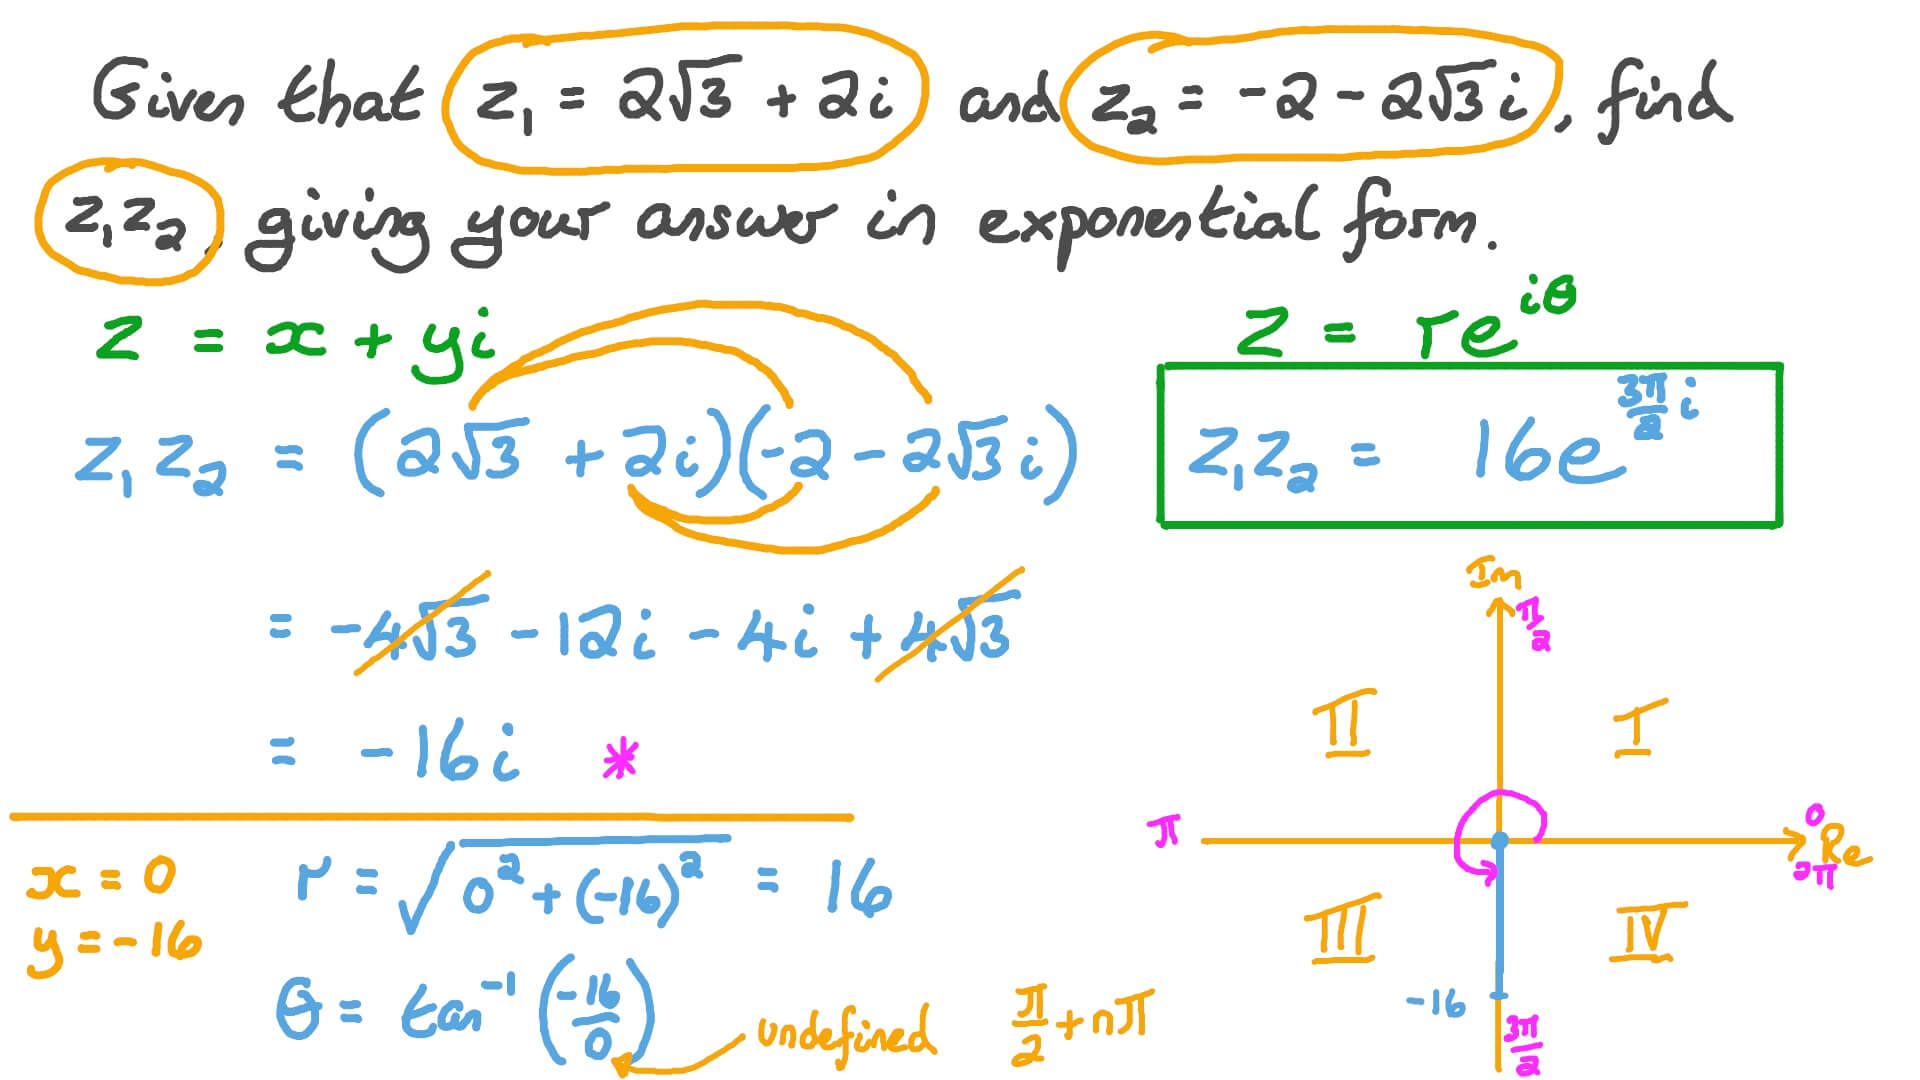 Given that z₁ = 2√3 + 2i and z₂ = -2 - 2√3i, find
z₁z₂, giving your answer in exponential form.
z = x + yi
z = re^(iθ)
z₁z₂ = (2√3 + 2i)(-2 - 2√3i)
z₁z₂ = 16e^(3π/2 i)
= -4√3 - 12i - 4i + 4√3
= -16i *
x = 0
y = -16
r = √(0² + (-16)²) = 16
θ = tan⁻¹(-16/0)
undefined
π/2 + nπ
Im
π/2
II
I
π
0
Re
2π
III
IV
-16
3π/2